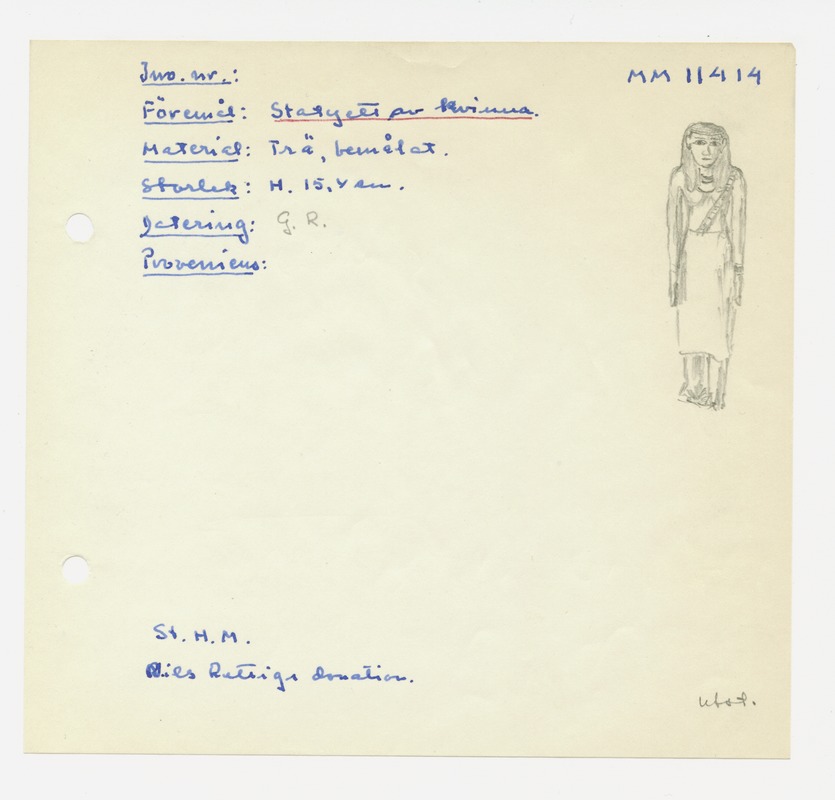 Inv. nr.: MM 11414
Föremål: Statyett av kvinna.
Material: Trä, bemålat.
Storlek: H. 15,4 cm.
Datering: G. R.
Proveniens:
St. H. M.
Nils Rettigs donation.
utst.